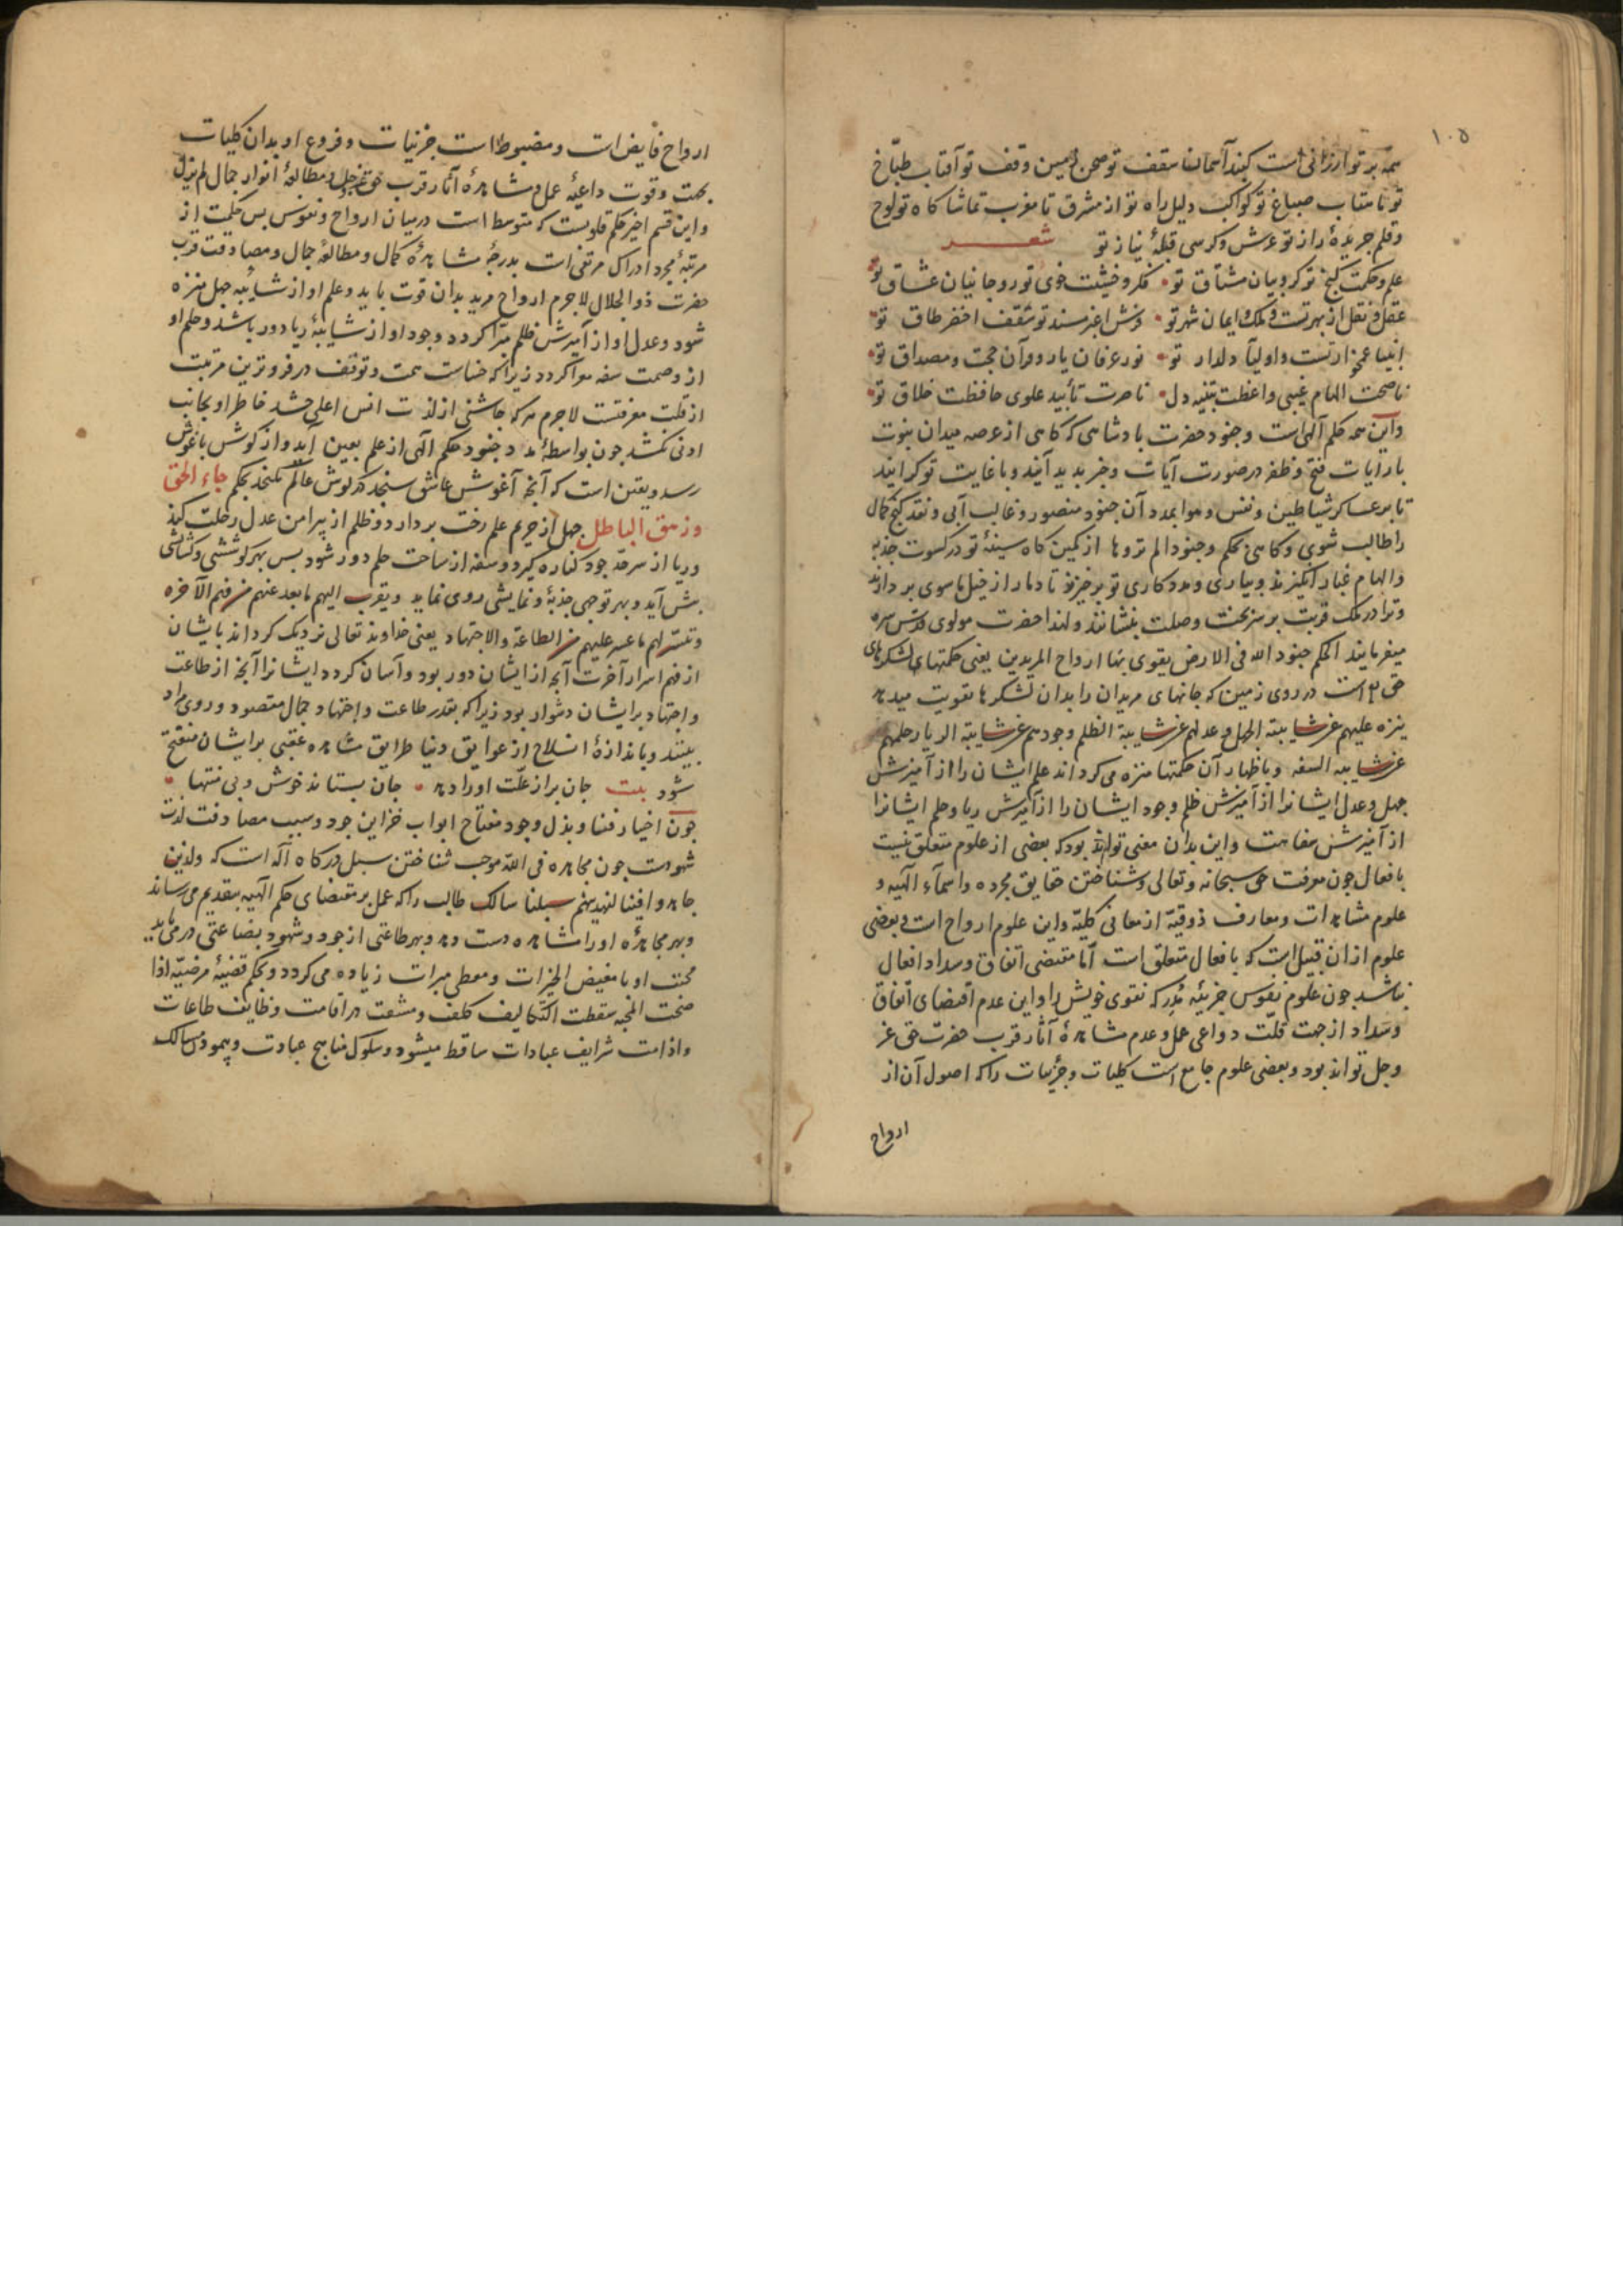 ١٠٥
همه بر تو ارزانی است کبند آسمان سقف تو صحن زمین وقف تو آفتاب طبّاخ
تو ماهتاب صباغ تو کواکب دلیل راه تو از مشرق تا مغرب تماشا کاه تو لوح
وقلم جریدهٔ راز تو عرش وکرسی قبلهٔ نیاز تو شعر
علم وحکمت کنج تو کروبیان مشتاق تو فکر وخشیت خوی تو روحانیان عشاق تو
عقل ونقل از بهر تست وملک وایمان شهر تو فرش اغبر مسند تو سقف اخضر طاق تو
انبیا غمخوار تست واولیا دلدار تو نور عرفان یار وقرآن حجت ومصداق تو
ناصحت الهام غیبی واعظت تنبیه دل ناصرت تأیید علوی حافظت خلاق تو
واین همه حکم آلهی است وجنود حضرت بادشاهی که کاهی از عرصه میدان نبوت
با رایات فتح وظفر در صورت آیات وخبر بدید آیند وبا غایت تو کرایند
تا بر عساکر شیاطین ونفس وهوا بمدد آن جنود منصور وغالب آیی ونقد کنج کمال
را طالب شوی وکاهی حکم وجنودا لم تروها از کمین کاه سینهٔ تو در کسوت جذبه
والهام غبار انکیزند وبیاری ومددکاری تو برخیزند تا دمار از خیل ماسوی بردارند
وترا در ملک قربت بر سریر تخت وصلت بنشانند ولهذا حضرت مولوی قدس سره
میفرمایند الحکم جنود الله فی الارض یقوی بها ارواح المریدین یعنی حکمتهای لشکرهای
حق است در روی زمین که جانهای مریدان را بدان لشکرها تقویت میدهد
ینزه علمهم عن شایبة الجهل وعدلهم عن شایبة الظلم وجودهم عن شایبة الریا وحلمهم
عن شایبه السفه وباظهار آن حکمتها منزه می کرداند علم ایشان را از آمیزش
جهل وعدل ایشانرا از آمیزش ظلم وجود ایشان را از آمیزش ریا وحلم ایشانرا
از آمیزش سفاهت واین بدان معنی تواند بود که بعضی از علوم متعلق نیست
بافعال چون معرفت حق سبحانه وتعالی وشناختن حقایق مجرده واسمآء آلهیه و
علوم مشاهدات ومعارف ذوقیّه از معانی کلیّه واین علوم ارواح است وبعضی
علوم ازان قبیل است که بافعال متعلق است امّا مقتضی اتفاق وسداد افعال
نباشد چون علوم نفوس جزئیه مدرکه نقوی خویش را واین عدم اقتضای اتفاق
وسداد از جهت قلّت دواعی عمل وعدم مشاهدهٔ آثار قرب حضرت حق عز
وجل تواند بود وبعضی علوم جامع است کلیات وجزئیات را که اصول آن از
ارواح
ارواح فایض است ومضبوط است جزئیات وفروع او بدان کلیات
بجهت وقوت داعیهٔ عمل ومشاهدهٔ آثار قرب حق عز وجل ومطالعهٔ انوار جمال لم یزل
واین قسم اخیر حکم قلوبست که متوسط است درمیان ارواح ونفوس بس حکمت از
مرتبهٔ مجرد ادراک مرتقی است بدرجهٔ مشاهدهٔ کمال ومطالعهٔ جمال ومصادقت قرب
حضرت ذوالجلال لاجرم ارواح مرید بدان قوت یابد وعلم او از شایبه جهل منزه
شود وعدل او از آمیزش ظلم مبرّا کردد وجود او از شایبهٔ ریا دور باشد وحلم او
از وصمت سفه معرا کردد زیرا که خساست همت وتوقف در فروترین مرتبت
از قلت معرفتست لاجرم هر که چاشنی از لذت انس اعلی چشد خاطر او بجانب
ادنی نکشد چون بواسطهٔ مدد جنود حکم آلهی از علم بعین آید واز کوش باغوش
رسد ویقین است که آنچه آغوش عاشق سنجد در کوش عالم نکنجد بحکم جاء الحق
وزهق الباطل جهل از حریم علم رخت بردارد وظلم از پیرامن عدل رحلت کند
وریا از سرحد جود کناره کیرد وسفه از ساحت حلم دور شود بس بهر کوششی وکشاکشی
بیش آید وبهر توجهی جذبهٔ ونمایشی روی نماید ویقرب الیهم ما بعد عنهم من فهم الآخره
وتیسر لهم ما عسر علیهم من الطاعة والاجتهاد یعنی خداوند تعالی نزدیک کرداند بایشان
از فهم اسرار آخرت آنچه از ایشان دور بود وآسان کردد ایشانرا آنچه از طاعت
واجتهاد بر ایشان دشوار بود زیرا که بقدر طاعت واجتهاد جمال مقصود وروی مراد
بینند وباندازهٔ انسلاخ از عوایق دنیا طرایق مشاهده عقبی بر ایشان منفتح
شود بیت جان بر از علّت او را دهد جان بستاند خوش وبی منتها
چون اختیار فنا وبذل وجود مفتاح ابواب خزاین جود وسبب مصادفت لذت
شهودست چون مجاهده فی اللّه موجب شناختن سبل درکاه آله است که والذین
جاهدوا فینا لنهدینهم سبلنا سالک طالب را که عمل بر مقتضای حکم آلهیه بتقدیم می رساند
وبهر مجاهدهٔ او را مشاهده دست دهد وبهر طاعتی از جود وشهود بضاعتی در می یابد
محبت او با مفیض الخیرات ومعطی مبرات زیاده می کردد وبحکم قضیهٔ مرضیّه اذا
صحت المحبه سقطت التکالیف کلفت ومشقت در اقامت وظایف طاعات
وادامت شرایف عبادات ساقط میشود وسلوک مناهج عبادت وپیمودن مسالک